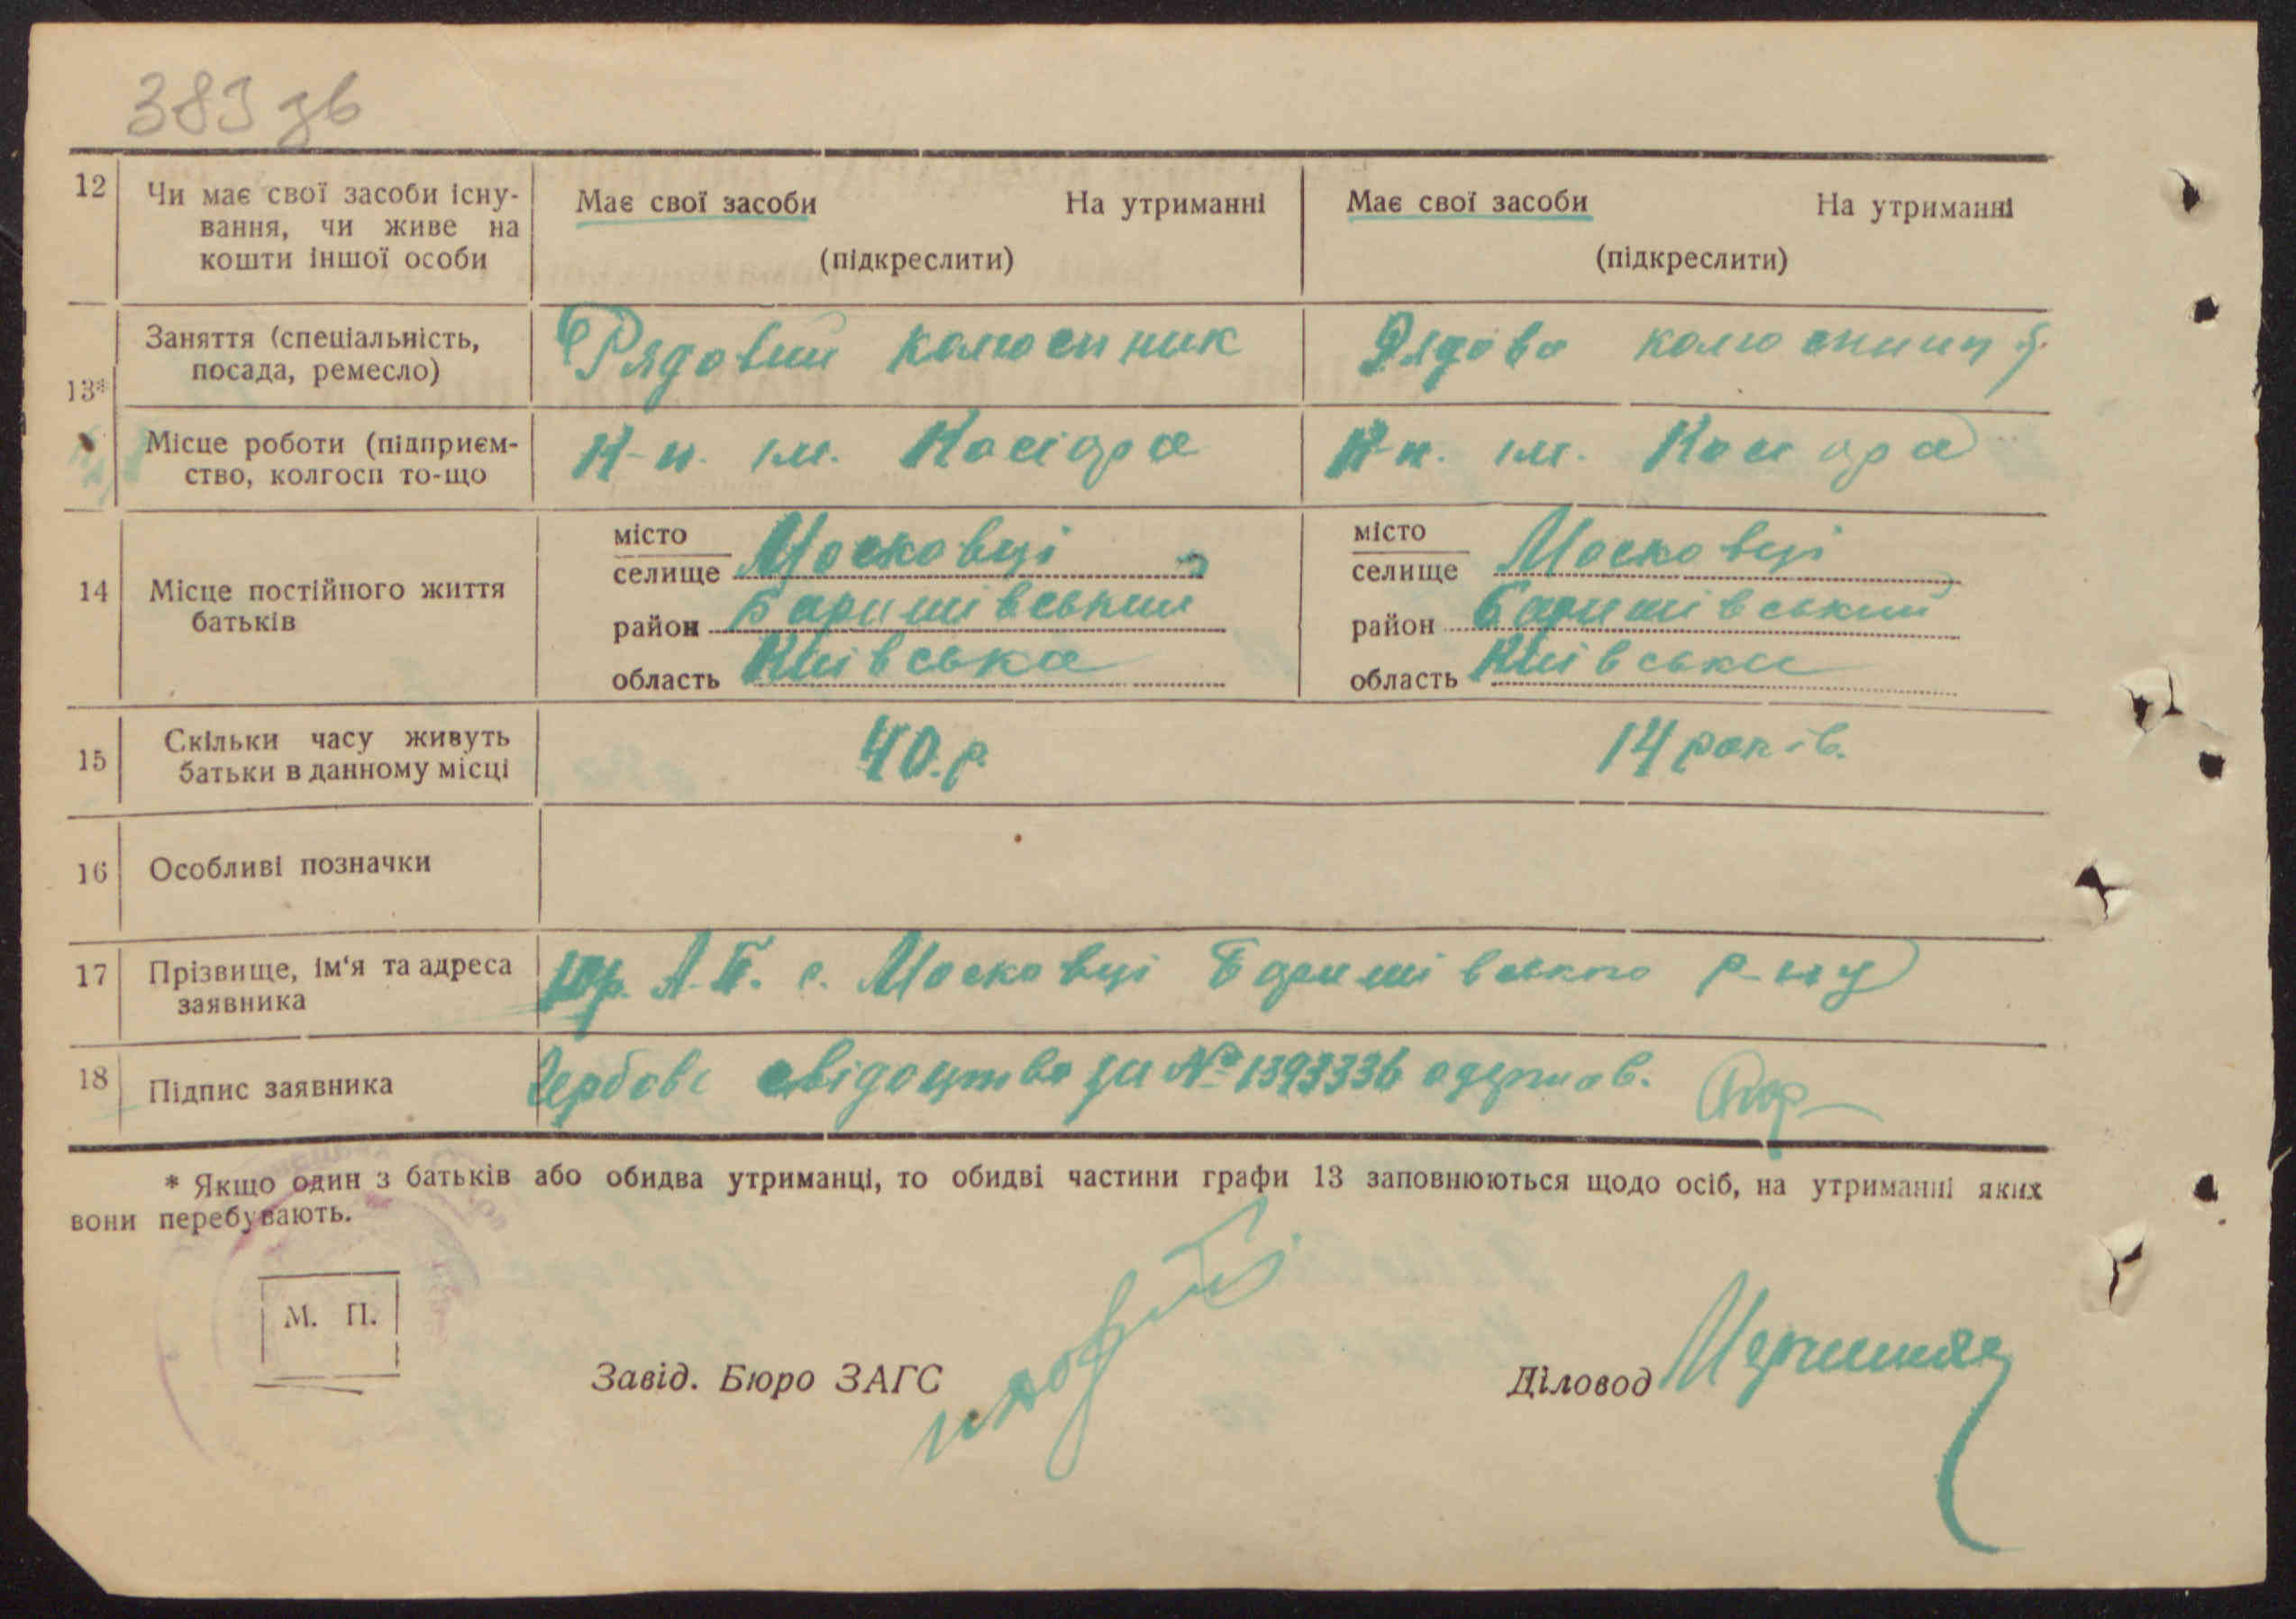 383 зв
12 Чи має свої засоби існу-
вання, чи живе на
кошти іншої особи
Має свої засоби На утриманні
(підкреслити)
Має свої засоби На утриманні
(підкреслити)
13*
Заняття (спеціальність,
посада, ремесло)
Рядовий колгоспник
Рядова колгоспниця
Місце роботи (підприєм-
ство, колгосп то-що
К-п. ім. Косіора
К-п. ім. Косиора
14 Місце постійного життя
батьків
місто
селище Московці
район Баришівський
область Київська
місто
селище Московці
район Баришівський
область Київська
15 Скільки часу живуть
батьки в данному місці
40.р.
14 років.
16 Особливі позначки
17 Прізвище, ім‘я та адреса
заявника
А.Б. с. Московці Баришівського р-ну
18 Підпис заявника
Гербове свідоцтво за № 1393336 одержав.
* Якщо один з батьків або обидва утриманці, то обидві частини графи 13 заповнюються щодо осіб, на утриманні яких
вони перебувають.
М. П.
Завід. Бюро ЗАГС
Діловод